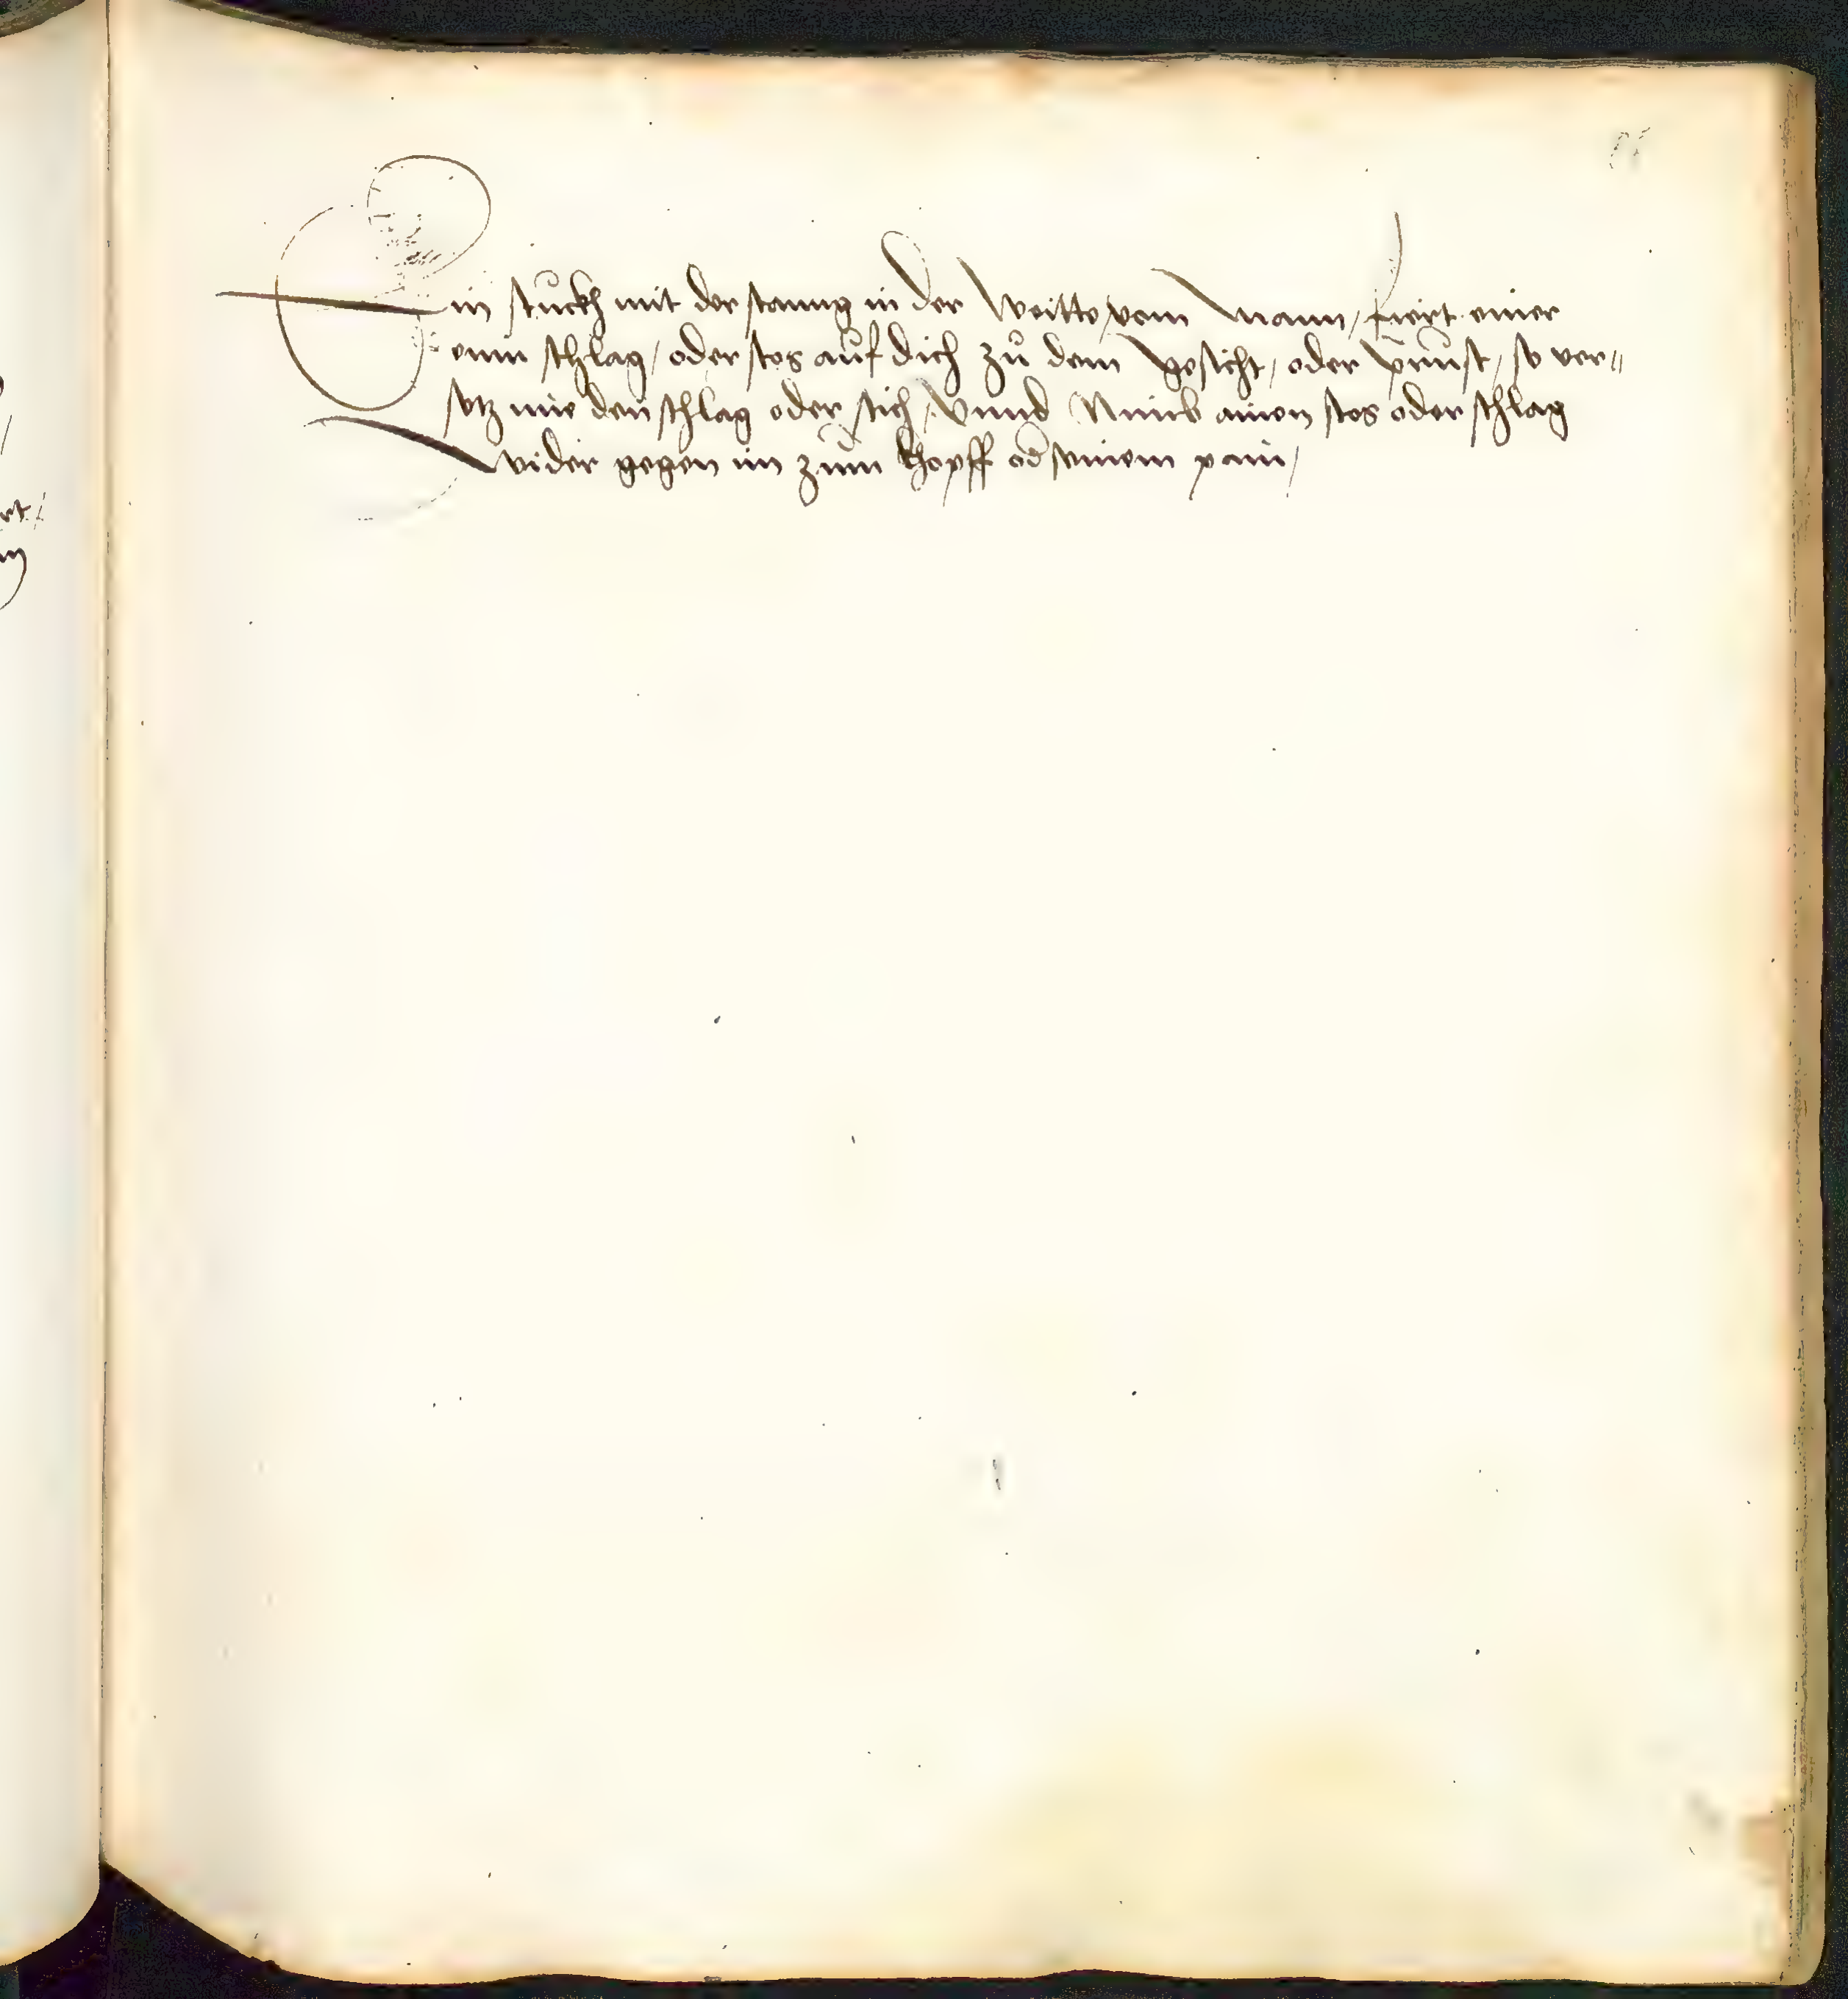 Ein stuckh mit der stanng in der Weitte / vom Mann / fiert einer
einn schlag / oder stos auf dich zů dem gesicht / oder prust / so ver„
setz mie den schlag oder stich / Vnnd Nimb ainen stos oder schlag
wider gegen im zům khopff od seinem pain /